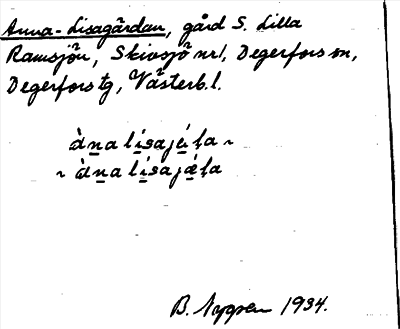 Anna-Lisagårdan, gård S. Lilla
Ramsjön, Skivsjö nr 1, Degerfors sn,
Degerfors tg, Västerb. l.
ànalísajǽɭa ~
~ ànalísajǽɭa
B. Nygren 1934.